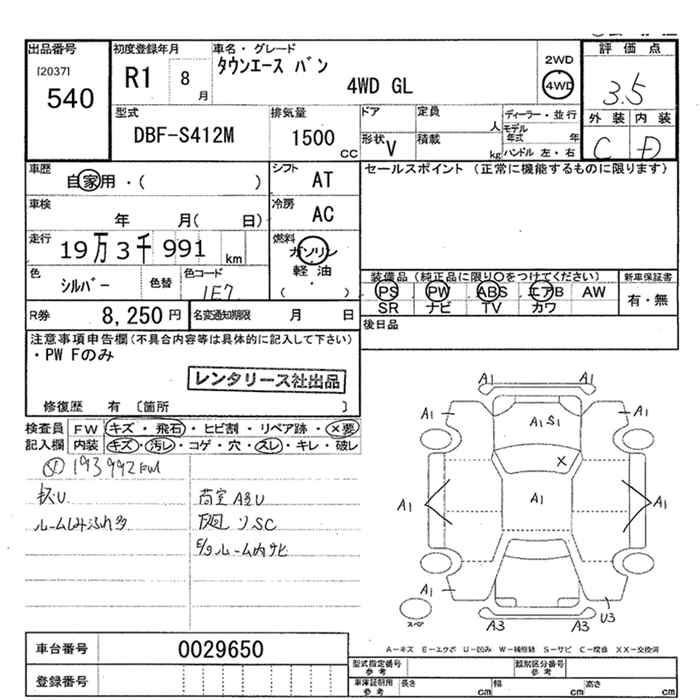 出品番号
[2037]
540
初度登録年月
R1 8 月
車名・グレード
タウンエース バン
4WD GL
2WD
4WD
評価点
3.5
外装 内装
C D
型式
DBF-S412M
排気量
1500 CC
ドア
定員 人
形状 V
積載 kg
ディーラー・並行
モデル年式 年
ハンドル 左・右
車歴
自家用・( )
シフト AT
車検
年 月( 日)
冷房 AC
走行
19万3千991 km
燃料
ガソリン
軽油
( ・ )
色
シルバー
色替
色コード
1E7
R券 8,250円
名変通知期限 月 日
セールスポイント (正常に機能するものに限ります)
装備品(純正品に限り○をつけてください)
PS PW ABS エアB AW
SR ナビ TV カワ
新車保証書
有・無
後日品
注意事項申告欄(不具合内容等は具体的に記入して下さい)
・PW Fのみ
レンタリース社出品
修復歴 有 〔箇所 〕
検査員記入欄
FW キズ・飛石・ヒビ割・リペア跡・×要
内装 キズ・汚レ・コゲ・穴・スレ・キレ・破レ
193992km
ルームしみ汚れ多
荷室 A多U
下廻りSC
E/g ルーム内サビ
A1
A1 A1
A1S1
X
A1 A1 A1
A1
U3
スペア
A3 A3
A−キズ E−エクボ U−凹み W−補修跡 S−サビ C−腐食 XX−交換済
車台番号 0029650
登録番号
型式指定番号 参考
類別区分番号 参考
車庫証明用 参考
長さ cm 幅 cm 高さ cm